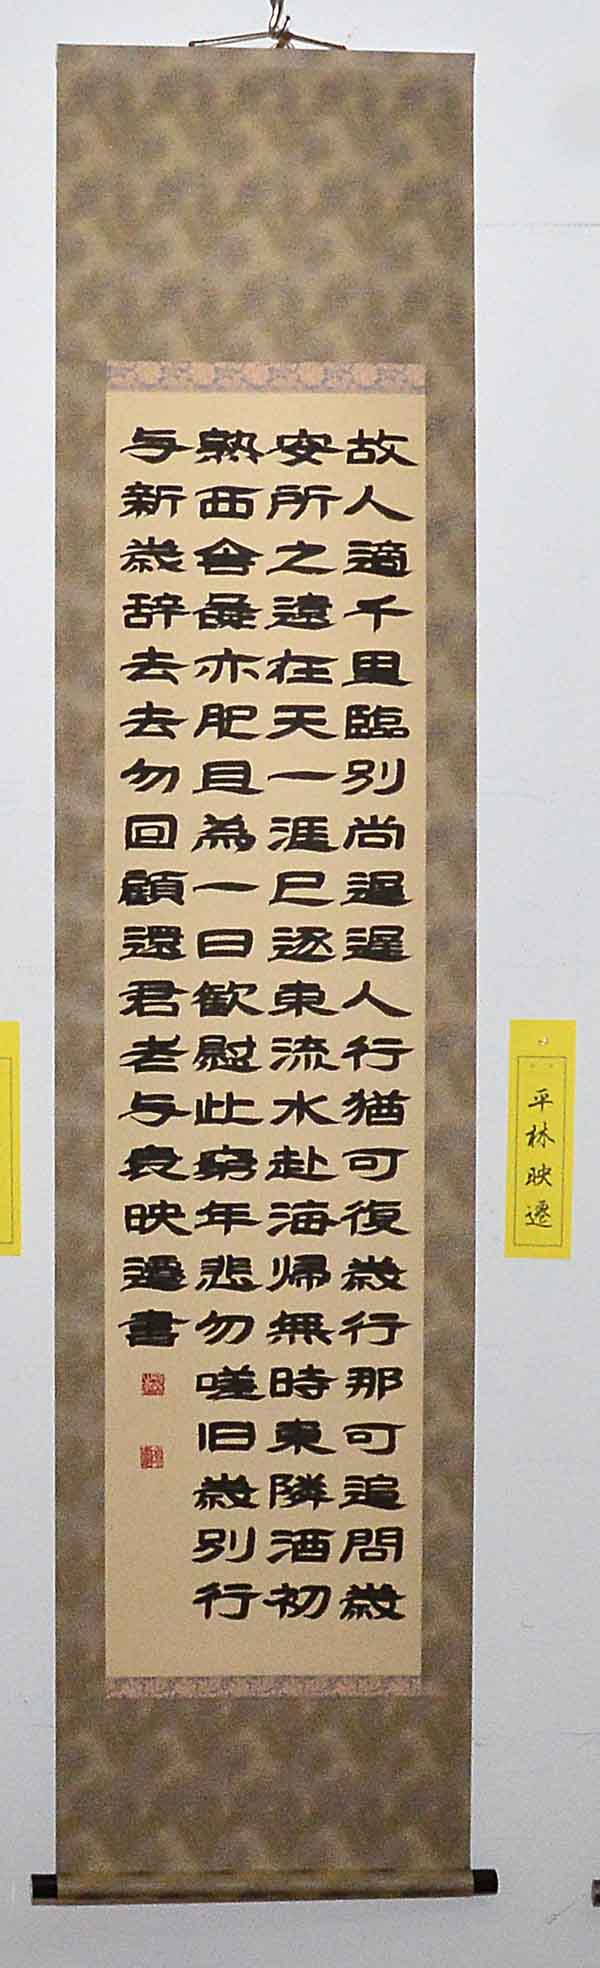 故人適千里臨別尚遲遲人行猶可復歳行那可追問歳
安所之遠在天一涯已逐東流水赴海帰無時東隣酒初
熟西舎彘亦肥且為一日歓慰此窮年悲勿嗟旧歳別行
与新歳辞去去勿回顧還君老与衰映遷書
平林映遷